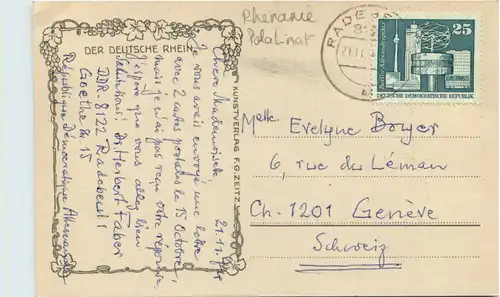 DER DEUTSCHE RHEIN
21.11.
Chère Mademoiselle,
Je vous avais envoyé une lettre
avec 2 cartes postales le 15 Octobre,
mais je n'ai pas reçu votre réponse.
J'espère que vous allez bien
Salutations, Dr. Herbert Faber
DDR 8122 Radebeul 1
Goethestr. 15
République Démocratique Allemande
KUNSTVERLAG F.G. ZEITZ
Rhenanie
Palatinat
RADEB
8122
21.11.
25
DEUTSCHE DEMOKRATISCHE REPUBLIK
Melle. Evelyne Boyer
6, rue du Léman
Ch-1201 Genève
Schweiz